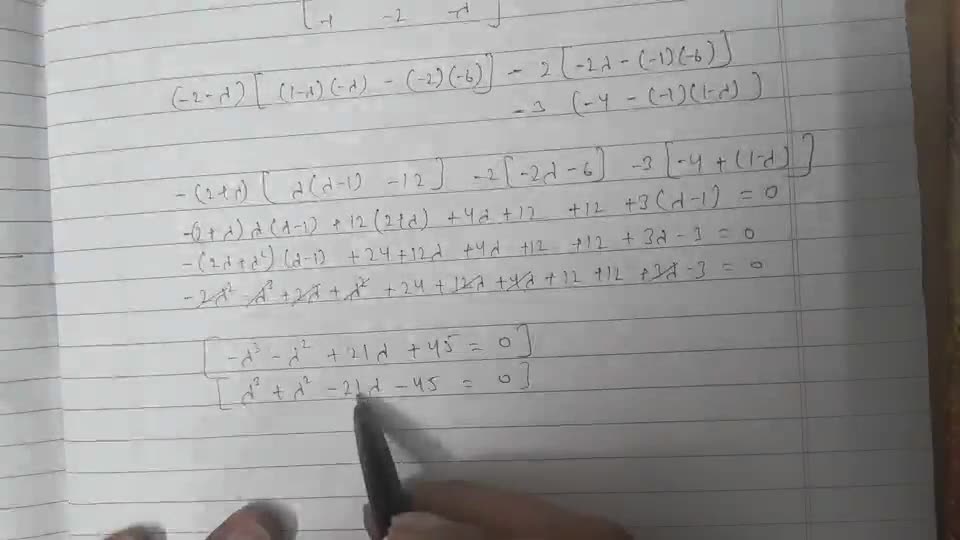 -1 -2 -λ ]
(-2-λ) [ (1-λ)(-λ) - (-2)(-6) ] - 2 [ -2λ - (-1)(-6) ]
-3 (-4 - (-1)(1-λ) ]
-(2+λ) [ λ(λ-1) -12 ] -2 [ -2λ-6 ] -3 [ -4 + (1-λ) ]
-(2+λ) λ(λ-1) + 12(2+λ) + 4λ + 12 + 12 + 3(λ-1) = 0
-(2λ+λ²) (λ-1) + 24 + 12λ + 4λ + 12 + 12 + 3λ - 3 = 0
-2λ² - λ³ + 2λ + λ² + 24 + 12λ + 4λ + 12 + 12 + 3λ - 3 = 0
[ -λ³ - λ² + 21λ + 45 = 0 ]
[ λ³ + λ² - 21λ - 45 = 0 ]